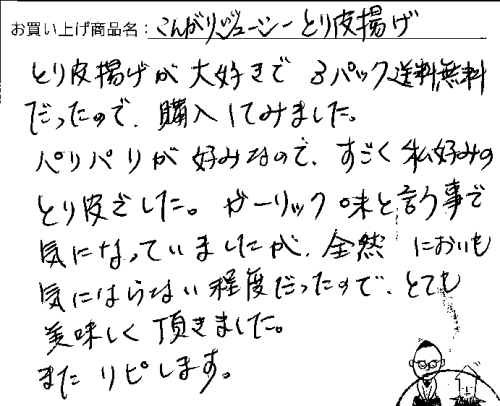 お買い上げ商品名：こんがりジューシーとり皮揚げ
とり皮揚げが大好きで 3パック送料無料
だったので、購入してみました。
パリパリが好みなので、すごく私好みの
とり皮でした。ガーリック味と言う事で
気になっていましたが、全然 においも
気にならない程度だったので、とても
美味しく頂きました。
また リピします。